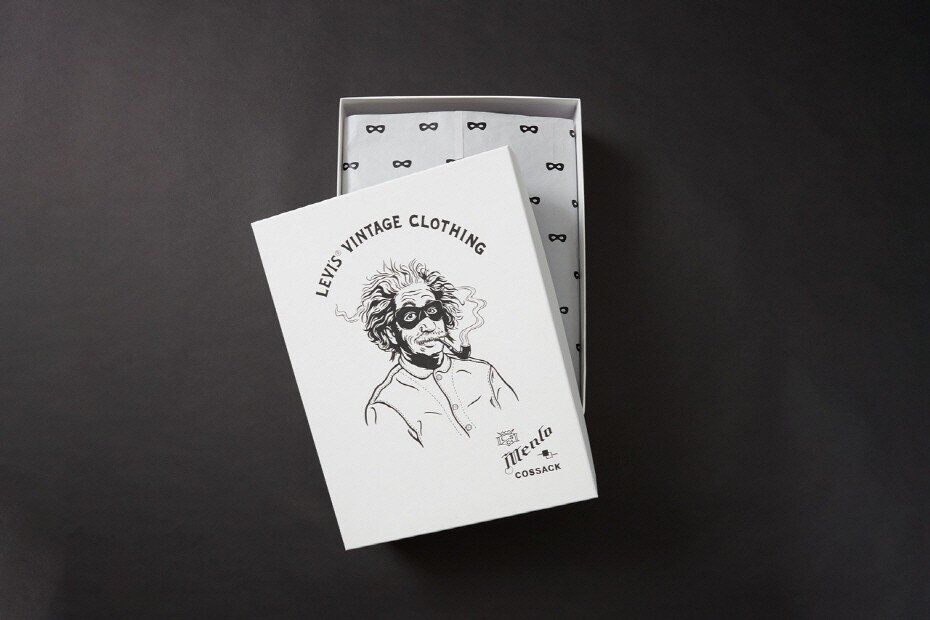 LEVI'S® VINTAGE CLOTHING
Menlo
COSSACK